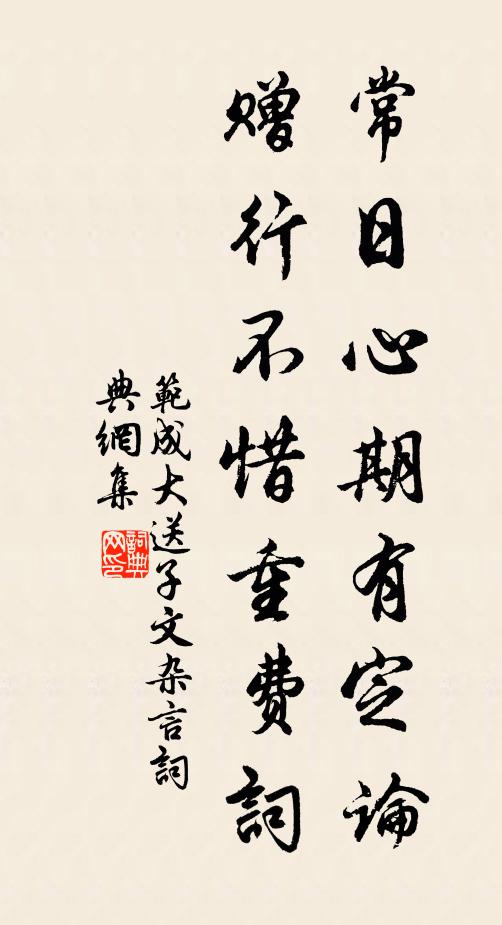 常日心期有定论
赠行不惜重费词
範成大送子文杂言詞
典網集
詞典网印